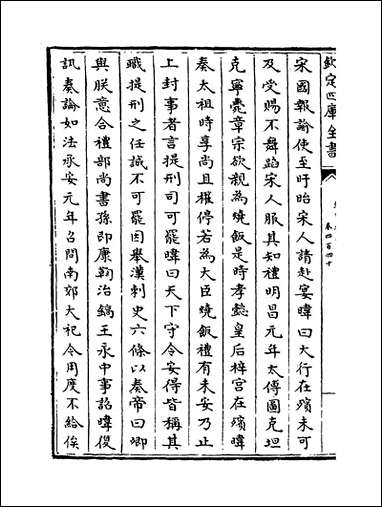 欽定四庫全書
卷四百四十
宋國報諭使至盱眙宋人請赴宴暐曰大行在殯未可
及受賜不舞蹈宋人服其知禮明昌元年太傅圖克坦
克寧薨章宗欲親為燒飯是時孝懿皇后梓宮在殯暐
奏太祖時享尚且權停若為大臣燒飯禮有未安乃止
上封事者言提刑司可罷暐曰天下守令安得皆稱其
職提刑之任誠不可罷因舉漢刺史六條以奏帝曰卿
與朕意合禮部尚書孫即康鞫治鎬王永中事詔暐復
訊奏論如法承安元年召問南郊大祀令用度不給俟